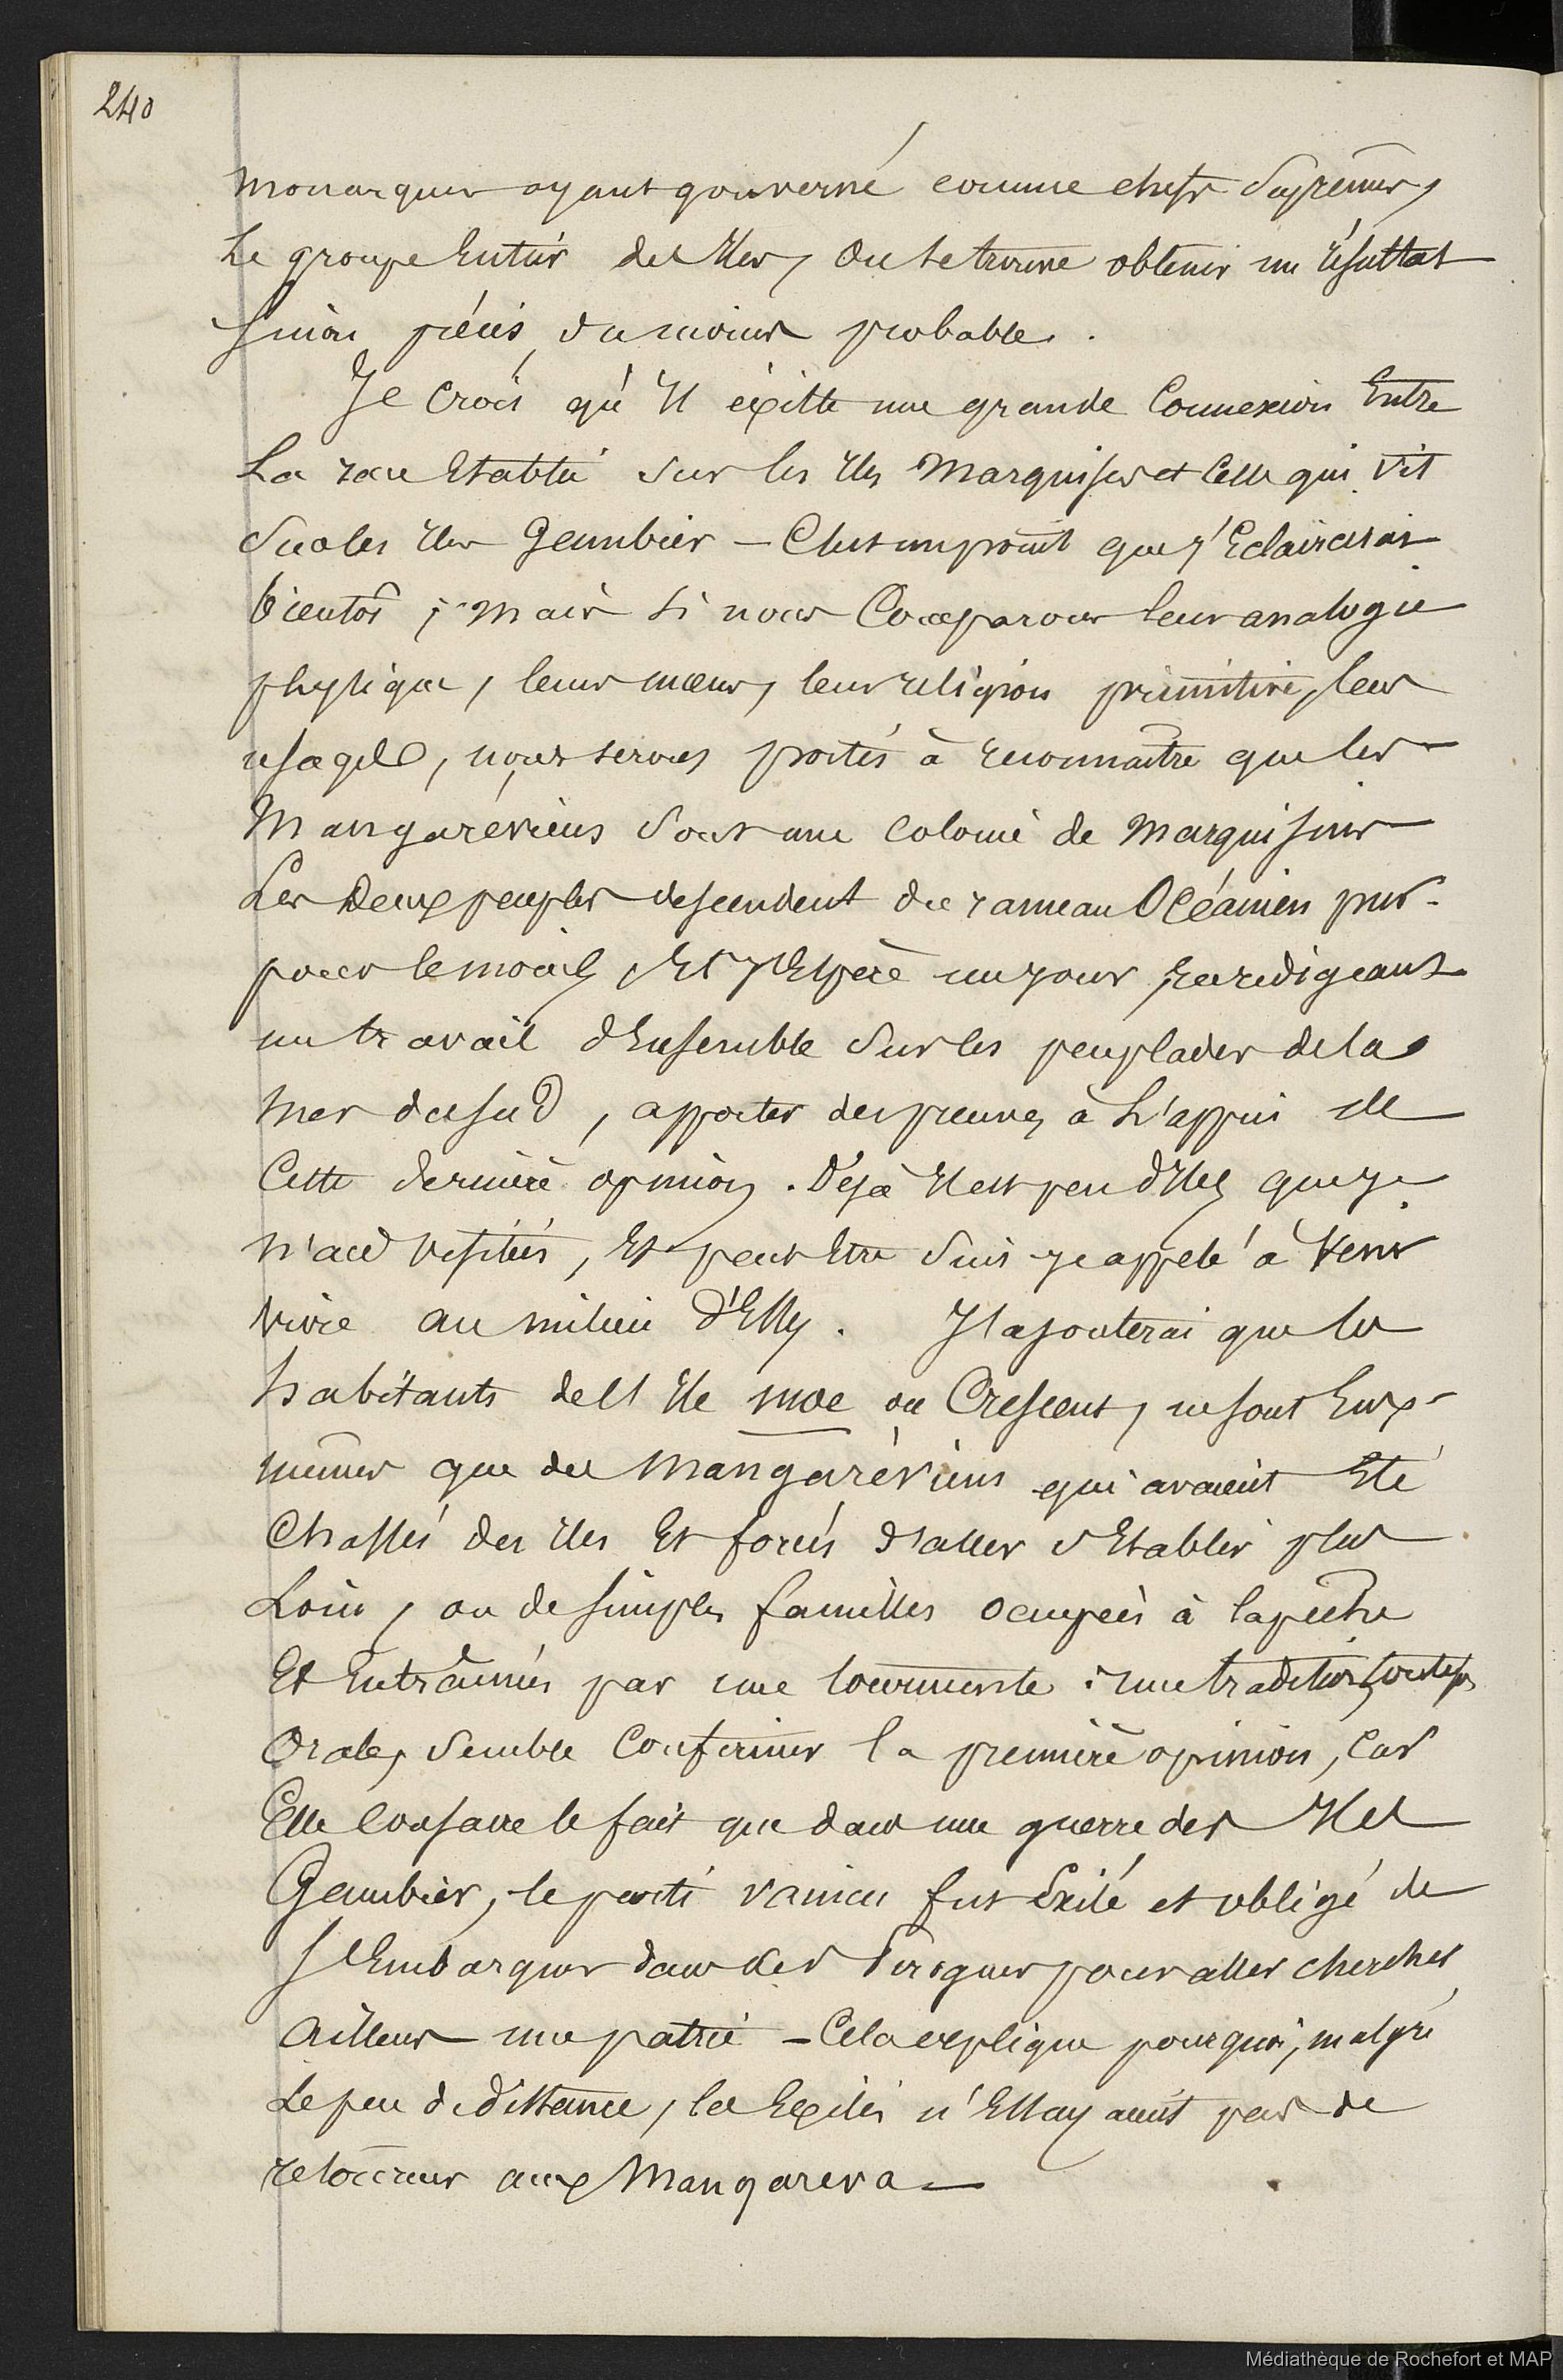 240
monarques ayant gouverné comme chefs suprêmes,
Le groupe Entier des Iles, on se trouve obtenir un résultat
sinon précis, du moins probable.
Je Crois qu'Il éxiste une grande Connexion Entre
La race Etablie sur les Iles Marquises et Celle qui vit
sur les Iles Gambier — C'est un point que j'Eclaircirai
bientôt ; mais si nous Comparons leur analogie
physique, leurs mœurs, leur religion primitive, leurs
usages, nous serons portés à reconnaître que les
Mangaréviens sont une Colonie de Marquisiens
Les Deux peuples descendent du rameau Océanien pur.
pour le moins, Et j'Espère un jour, En redigeant
un travail d'Ensemble sur les peuplades de la
Mer du sud, apporter des preuves à L'appui de
Cette dernière opinion. Déjà Il est peu d'Iles que je
n'aie visitées, Et peut Etre suis-je appelé à venir
vivre au milieu d'Elles. J'ajouterai que les
habitants de l'Ile moe ou Crescent, ne sont Eux-
mêmes que des Mangaréviens qui avaient Eté
Chassés des Iles Et forcés d'aller s'Etablir plus
Loin, ou de simples familles occupées à la pêche
Et Entrainées par une tourmente : une tradition, toutefois
Orale, semble Confirmer la première opinion, Car
Elle Consacre le fait que dans une guerre des Iles
Gambier, le parti vaincu fut Exilé et obligé de
s'Embarquer dans des Pirogues pour aller chercher
Ailleurs une patrie — Cela explique pourquoi, malgré
Le peu de distance, les Exilés n'Essayaient pas de
retourner aux Mangareva —
Médiathèque de Rochefort et MAP